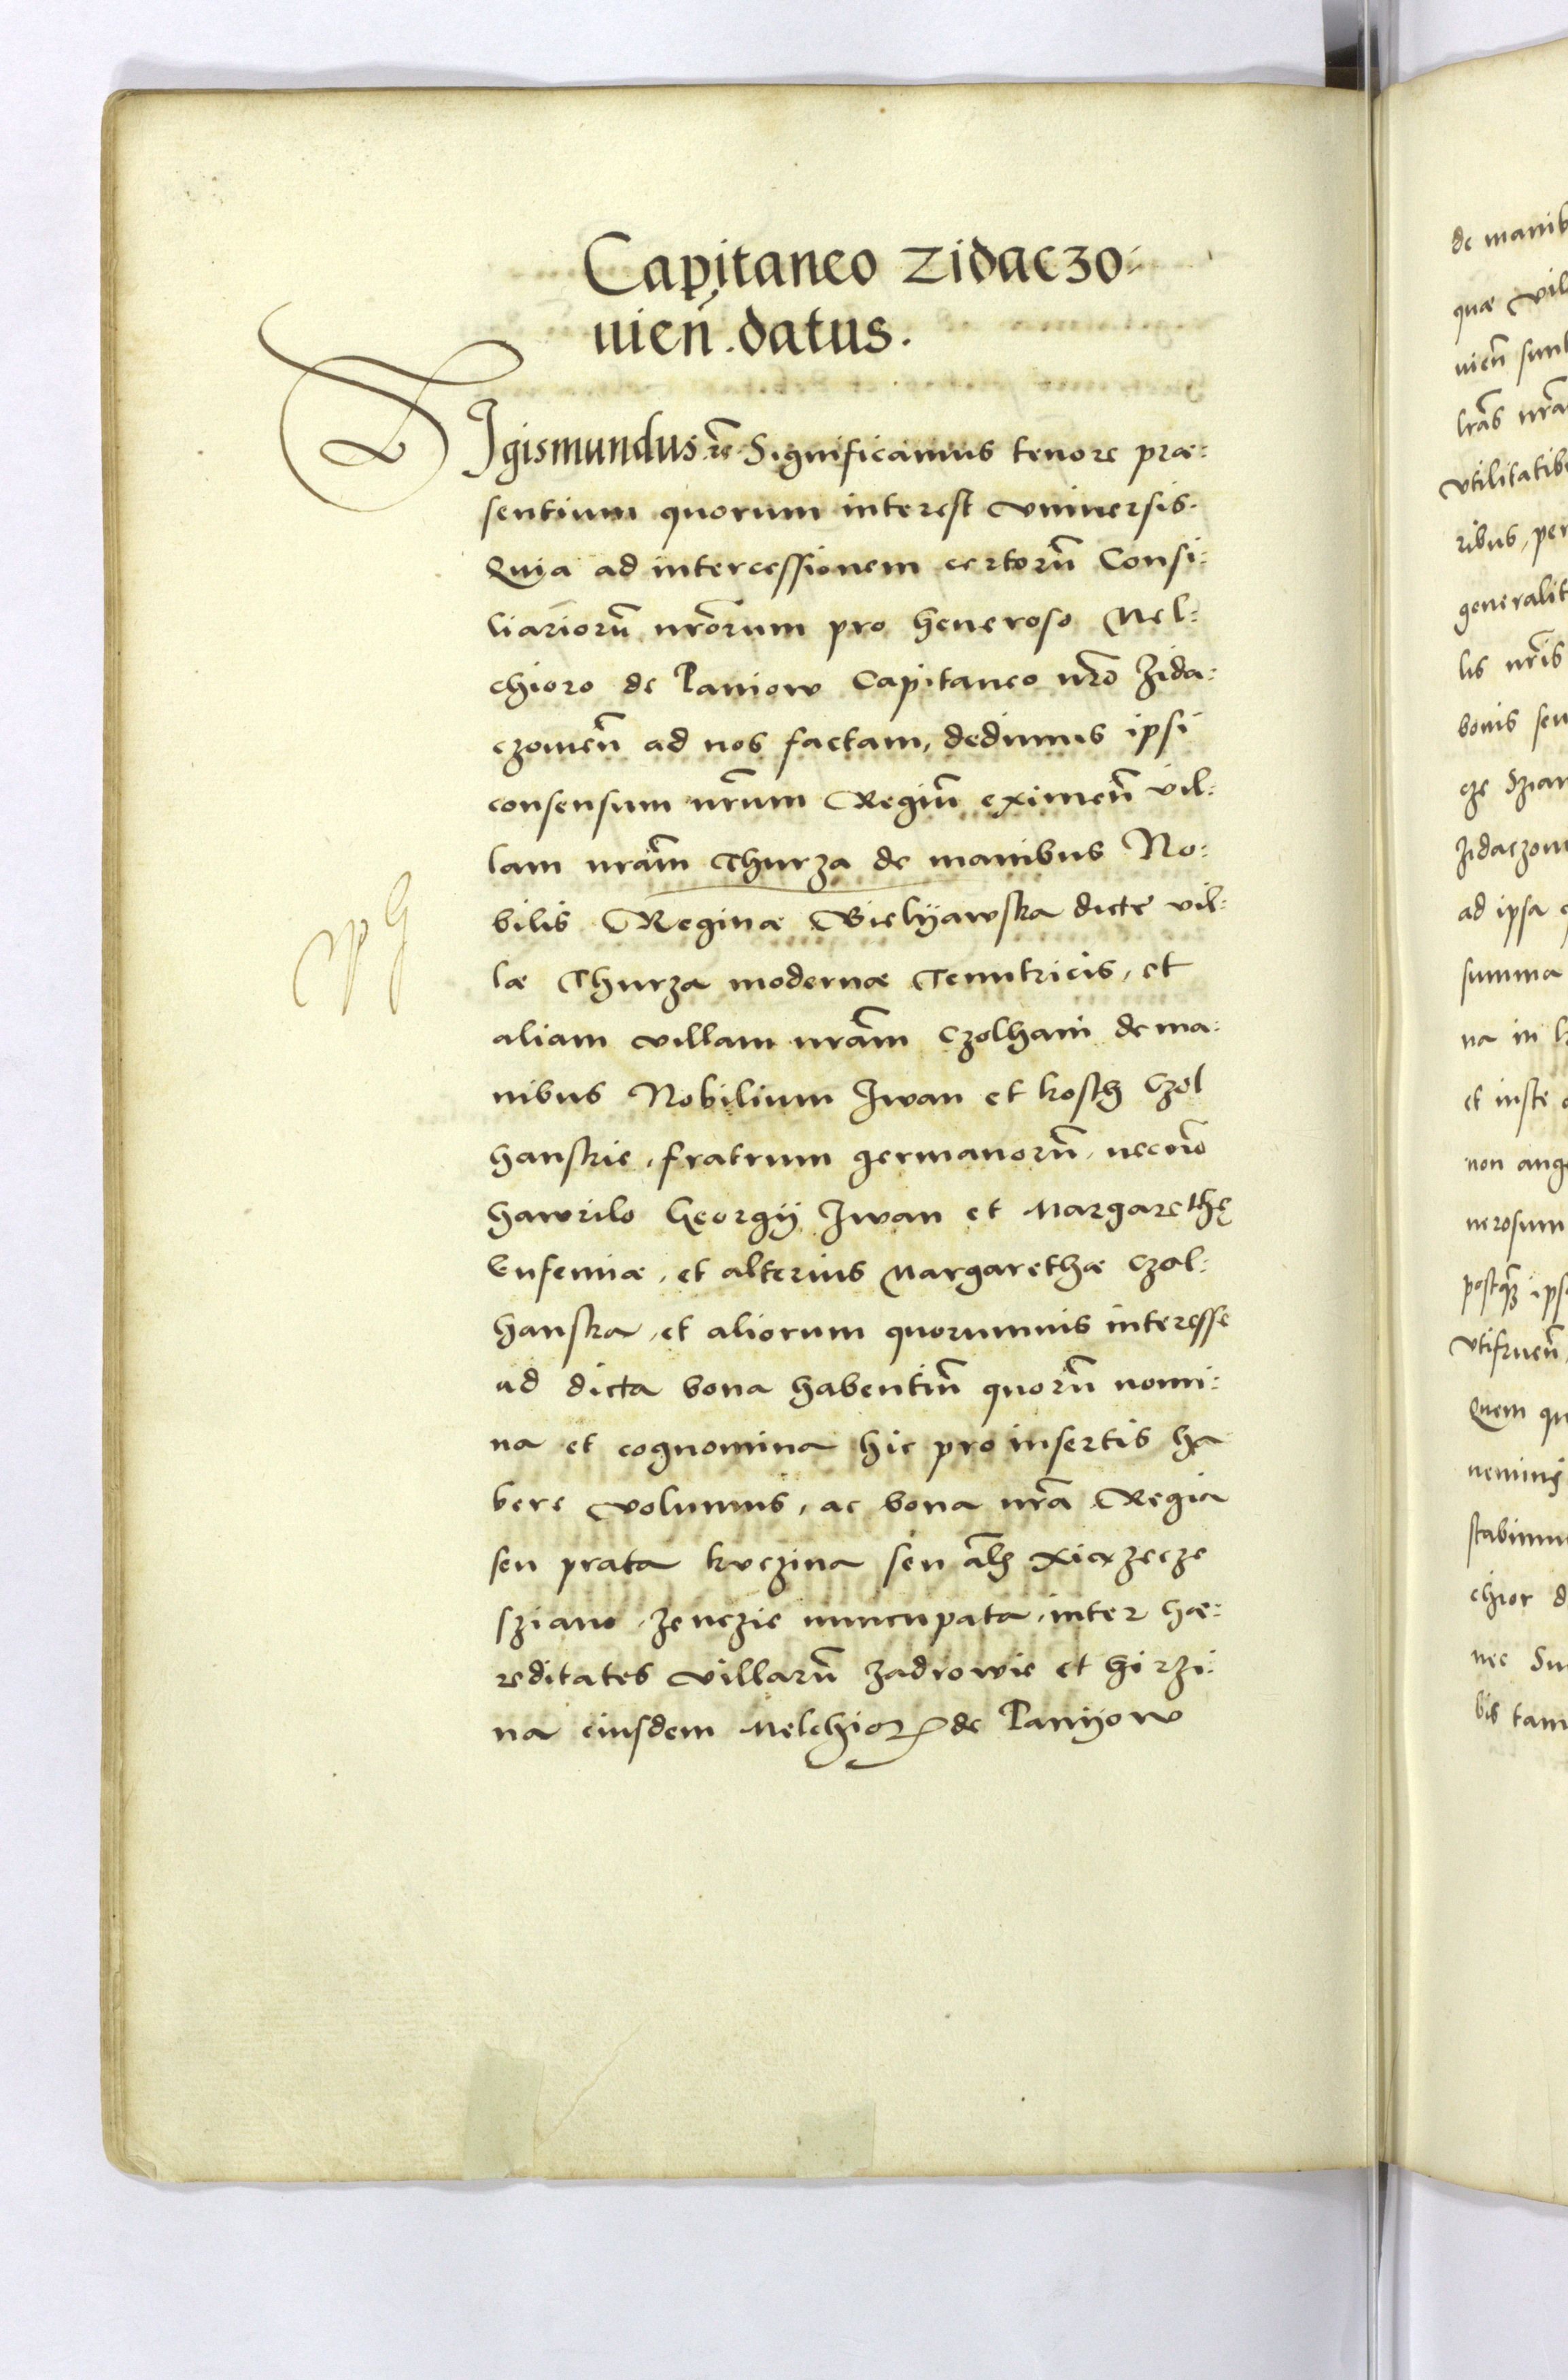 Capitaneo Zidaczo:
uieñ. datus.
SIgismundus rē Significamus tenore præ:
sentium quorum interest vniuersis.
Quia ad intercessionem certorū Consi:
liariorū nrōrum pro Generoso Mel:
chioro de Paniow Capitaneo nrō Zida:
czouieñ ad nos factam, dedimus ipsi
consensum nrūm Regiū eximeñ vil:
lam nrām Thurza de manibus No:
bilis Reginæ Bielyawska dicte vil:
læ Thurza modernæ Tenutricis, et
aliam villam nrām Czolhani de ma:
nibus Nobilium Iwan et kosth Czol
hanskie, fratrum germanorū, necnō
hawrilo Georgij Iwan et Margarethę
Eufemiæ, et alterius Margarethæ Czol:
hanska, et aliorum quorumuis interesse
ad dicta bona habentiū quorū nomi:
na et cognomina hic pro insertis ha
bere volumus, ac bona nrā Regia
seu prata kuczina seu al̄s xiazecze
sziano zenczie nuncupata, inter hæ:
reditates villarū Zadrowie et hirzi:
na eiusdem Melchior de Panyow
de manib
quæ vil
uieñ sunt
lrās nrā
vtilitatib
ribus, per
generalit
lis nrīs
bonis seu
cze Szian
Zidaczou
ad ipsa
summa
na in
et iuste
non ang
nerosum
postq̄ȝ ips
vtifrueñ
Quem qu
nemini
stabimu
chior d
nec Su
bis tam